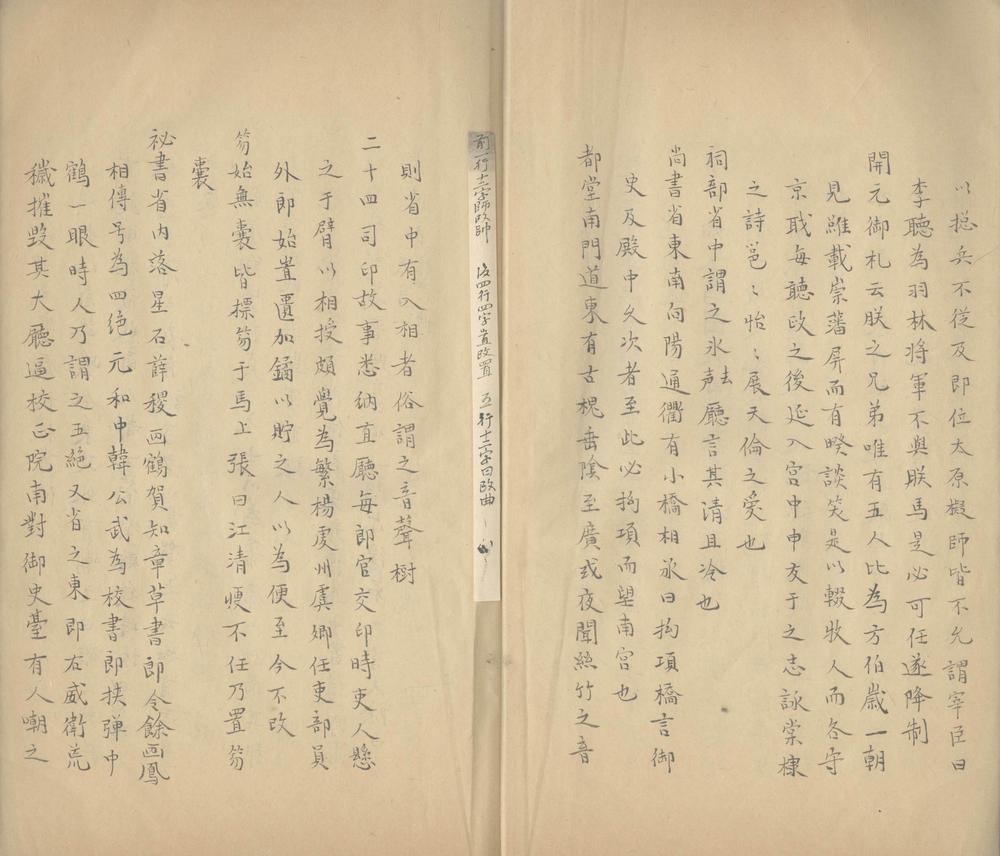 以揔兵不從及即位太原擬師皆不允謂宰臣曰
李聽為羽林將軍不與朕馬是必可任遂降制
開元御札云朕之兄弟唯有五人比為方伯歲一朝
見雖載崇藩屏而有暌談笑是以輟牧人而各守
京職每聽政之後延入宮中申友于之志詠棠棣
之詩邕〻怡〻展天倫之愛也
祠部省中謂之氷廳言其清且冷也
尚書省東南向陽通衢有小橋相承曰拘項橋言御
史及殿中久次者至此必拘項而望南宮也
都堂南門道東有古槐垂陰至廣或夜聞絲竹之音
前一行十一字師改帥 後四行四字置改置 五行十二字曰改曲
則省中有入相者俗謂之音聲樹
二十四司印故事悉納直廳每郎官交印時吏人懸
之于臂以相授頗覺為繁楊虔州虞卿任吏部員
外郎始置匱加鐍以貯之人以為便至今不改
笏始無囊皆㯹笏于馬上張曰江清瘦不任乃置笏
囊
祕書省內落星石薛稷画鶴賀知章草書郎令餘画鳳
相傳号為四絕元和中韓公武為校書郎挾彈中
鶴一眼時人乃謂之五絕又省之東即右威衛荒
穢摧毀其大廳逼校正院南對御史臺有人嘲之